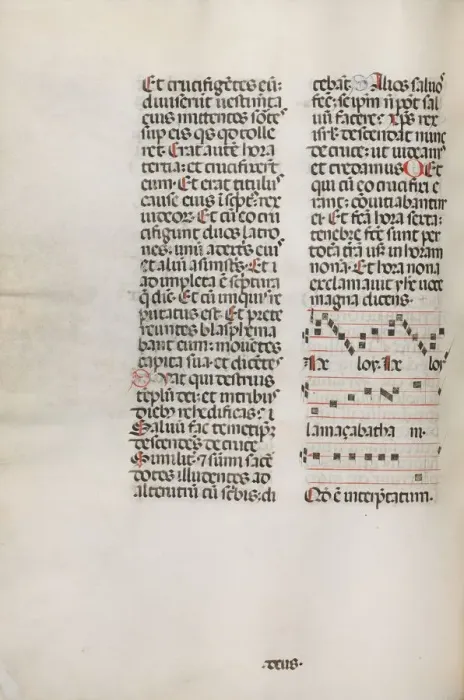 Et crucifigẽtes eũ:
diuiserũt uestimẽta
eius mittentes sortẽ
sup eis q̃s qđ tolle
ret. Erat autẽ hora
tertia: et crucifixerũt
eum. Et erat titulus
cause eius ĩscptꝰ: rex
iudeoꝝ. Et cũ eo cru
cifigunt duos latro
nes. unũ a dextris eiꝰ
et aliũ a sinistrꝭ. Et ĩ
adimpleta ẽ scptura
q̃ diẽ. Et cũ iniquis re
putatus est. Et prete
reuntes blasphema
bant eum: mouẽtes
capita sua. et dicẽtes
Vat qui destruis
teplũ dei: et ĩ tribus
diebꝰ rehedificas: ĩ
Saluũ fac temetipm̃
descendẽs de cruce
Similit̃ ⁊ sũmi sac̃e
dotes illudentes ad
alterutrũ cũ sc̃bis: di
cebãt. Alios saluos
fec̃: seipm̃ ñ põt sal
uũ facere: xp̃s rex
isrł descendat nunc
de cruce: ut uideamꝰ
et credamus. Et
qui cũ eo crucifixi e
rant: cõuitiabantur
ei. Et fc̃a hora sexta:
tenebre fc̃e sunt per
totã t̃rã usꝗ in horam
nonã. Et hora nona
exclamauit yh̃c uoce
magna dicens.
Ex loy. Ex loy
lamaçabatha ni.
Qđ ẽ interp̃tatum.
.deus.